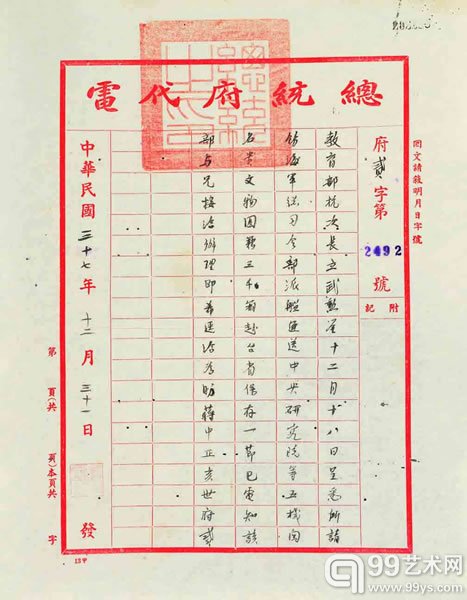 總統府代電
回文請敘明月日字號
府貳字第2492號
附記
教育部杭次長立武勳鑒十二月十八日呈悉所請
飭海軍總司令部派艦運送中央研究院等五機關
名貴文物圖籍三千箱赴台省保存一節已電知該
部與兄接洽辦理即希逕洽為盼蔣中正亥世府貳
中華民國三十七年十二月三十一日發
第 頁(共 頁)本頁共 字
99艺术网
www.99ys.com